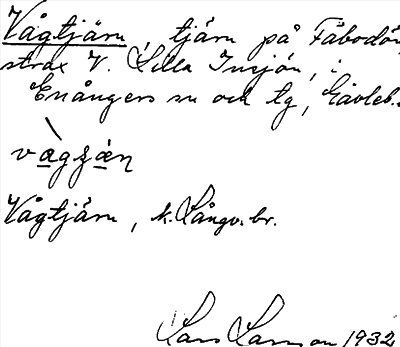 Vågtjärn, tjärn på Fäbodön,
strax V. Lilla Insjön, i
Enångers sn och tg, Gävleb.
Vågtjärn, k. Långv. br.
Lars Larsson 1932